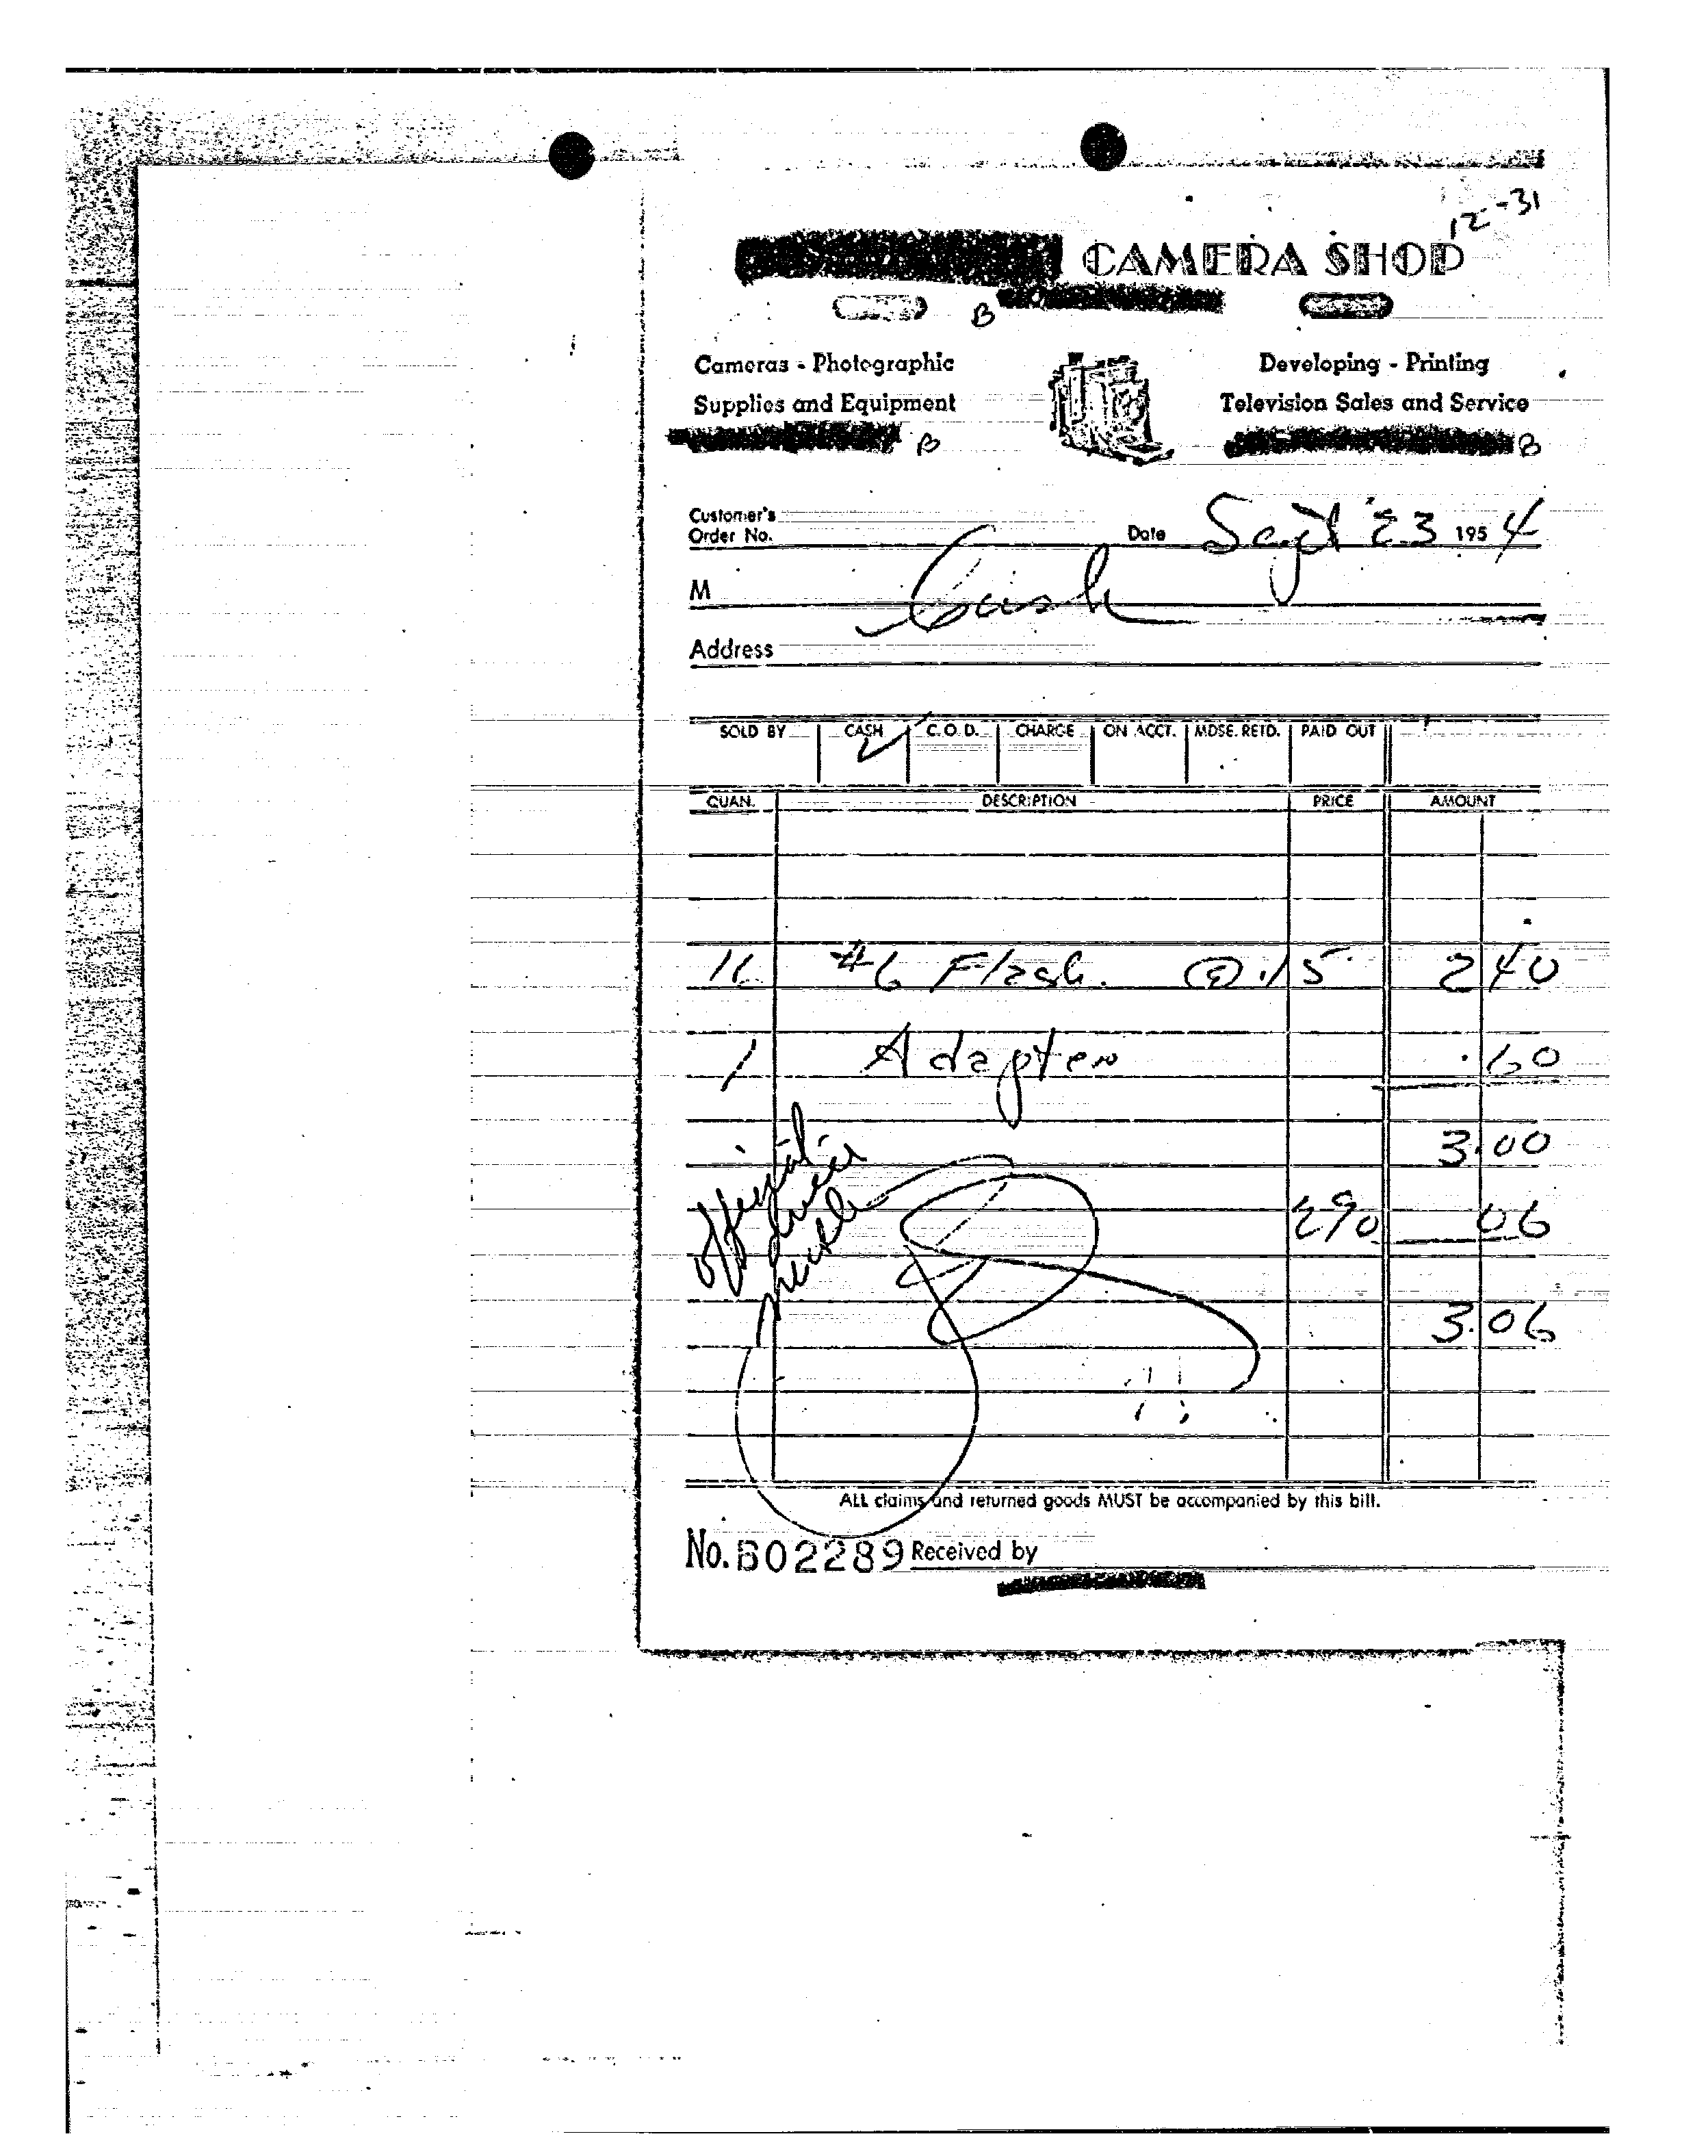 12-31
CAMERA SHOP
B
Cameras - Photographic
Supplies and Equipment
B
Developing - Printing
Television Sales and Service
B
Customer's
Order No.
Date Sept 23 1954
M Cash
Address
SOLD BY CASH C.O.D. CHARGE ON ACCT. MDSE. RETD. PAID OUT
QUAN. DESCRIPTION PRICE AMOUNT
16 #6 Flash. @ .15 2 40
1 Adapter .60
3.00
2% 06
3.06
ALL claims and returned goods MUST be accompanied by this bill.
No. B02289 Received by